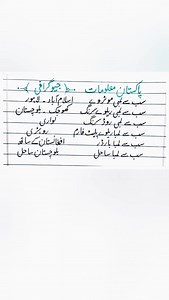 پاکستان معلومات ۔۔(جیوگرافی)۔۔
سب سے لمبی موٹروے اسلام آباد - لاہور
سب سے لمبی ریلوے سرنگ کھوجک - بلوچستان
سب سے لمبی روڈ سرنگ لواری
سب سے لمبا ریلوے پلیٹ فارم روہڑی
سب سے لمبا بارڈر افغانستان کے ساتھ
سب سے لمبا ساحل بلوچستان ساحل